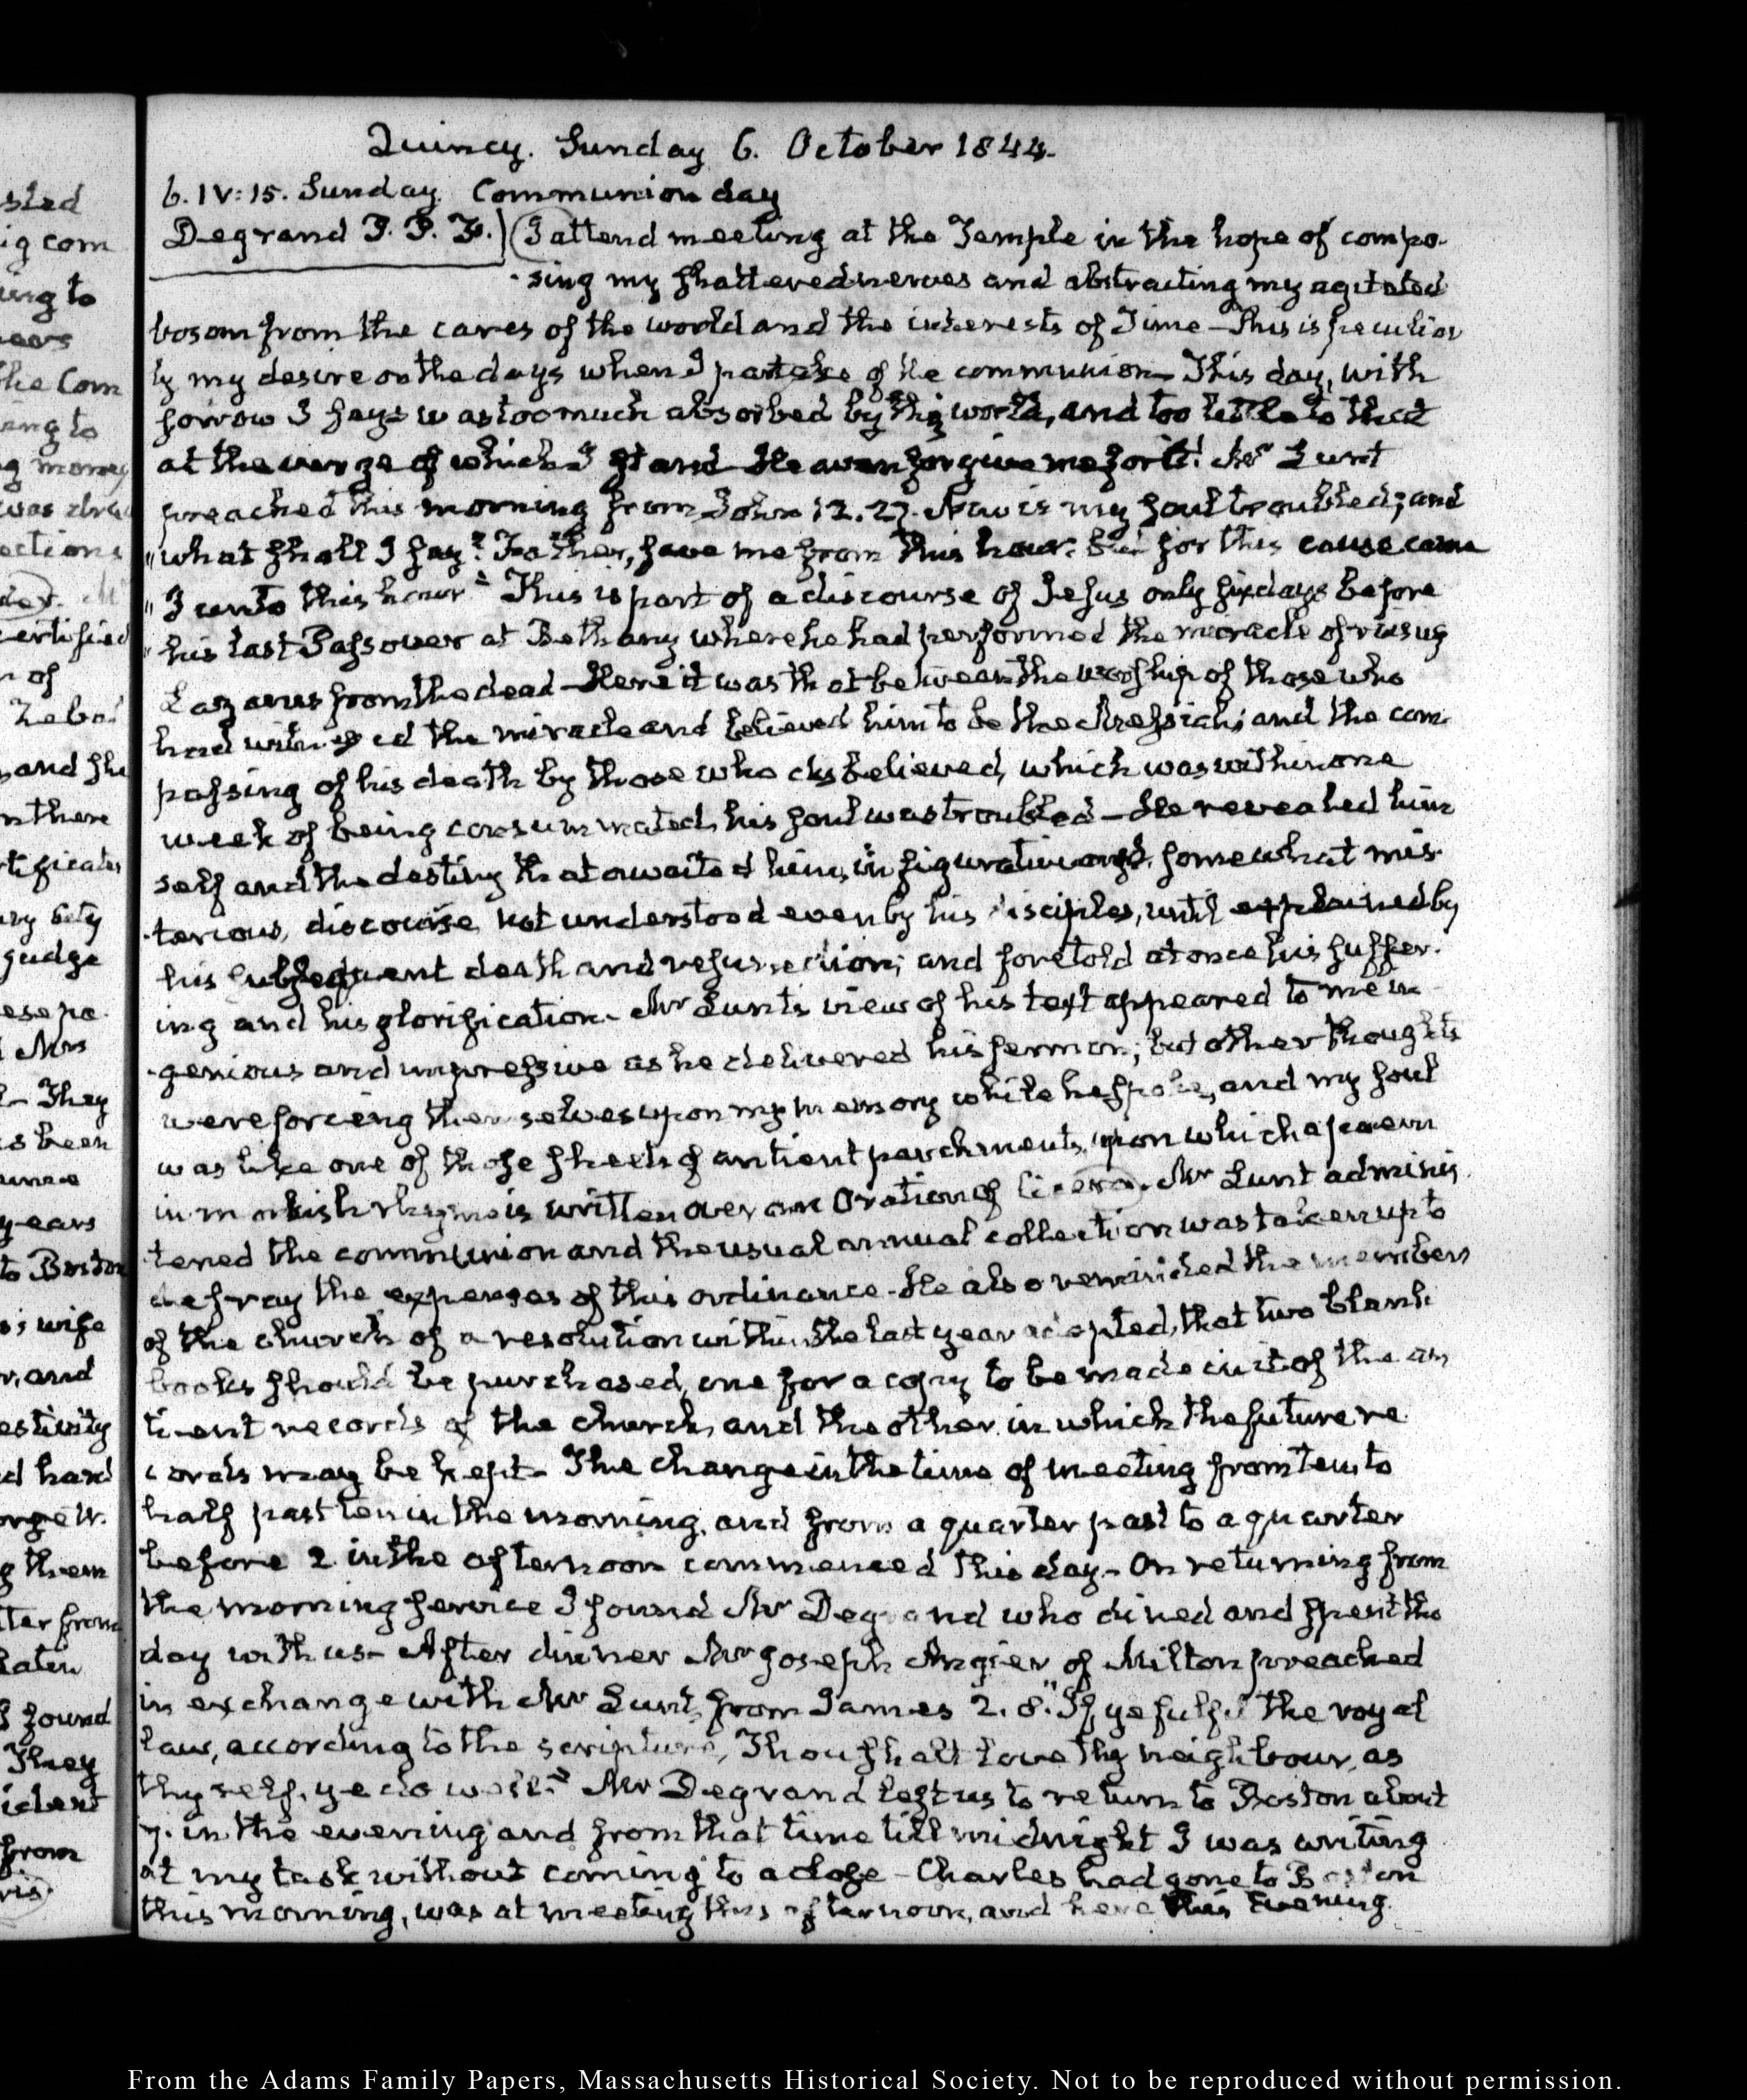 Quincy. Sunday 6. October 1844.
6. IV:15. Sunday. Communion day
Degrand P. P. F.] I attend meeting at the Temple in the hope of compo-
-sing my shattered nerves and abstracting my agitated
bosom from the cares of the world and the interests of Time - This is peculiar
ly my desire on the days when I partake of the communion - This day, with
sorrow I say I was too much absorbed by this world, and too little to that
at the verge of which I stand - Heaven forgive me for it! Mr Lunt
preached this morning from John 12.27. Now is my soul troubled; and
"what shall I say? Father, save me from this hour: but for this cause came
"I unto this hour" This is part of a discourse of Jesus only six days before
"his last Passover at Bethany where he had performed the miracle of rising
Lazarus from the dead - Here it was that between the worship of those who
had witnessed the miracle and believed him to be the Messiah; and the com-
passing of his death by those who disbelieved, which was within one
week of being consummated, his soul was troubled - He revealed him
self and the destiny that awaited him, in figurative and somewhat mis-
-terious, discourse, not understood even by his disciples, until explained by
his subsequent death and resurrection; and foretold at once his suffer-
ing and his glorification - Mr Lunt's view of his text appeared to me in
-genious and impressive as he delivered his sermon; but other thoughts
were forcing themselves upon my memory while he spoke, and my soul
was like one of those sheets of antient parchment, upon which a poem
in monkish rhyme is written over an Oration of Cicero. Mr Lunt adminis-
tered the communion and the usual annual collection was taken up to
defray the expenses of this ordinance - He also reminded the members
of the church of a resolution within the last year adopted, that two blank
books should be purchased, one for a copy to be made in it of the an
tient records of the church, and the other in which the future re
cords may be kept - The change in the time of meeting from ten to
half past ten in the morning, and from a quarter past to a quarter
before 2 in the afternoon commenced this day - On returning from
the morning service I found Mr Degrand who dined and spent the
day with us - After dinner Mr Joseph Angier of Milton preached
in exchange with Mr Lunt, from James 2.8. "If ye fulfil the royal
law, according to the scripture, Thou shalt love thy neighbour, as
thyself, ye do well." Mr Degrand left us to return to Boston about
7. in the evening and from that time till midnight I was writing
at my task without coming to a close - Charles had gone to Boston
this morning, was at meeting this afternoon, and here this Evening.
sted
ig com
ing to
the Com
ing to
g money
was
ections
certified
n of
and she
n there
rtificate
ury City
judge
Mrs
They
is been
years
to Boston
s; wife
r, and
estivity
d hand
orge W.
g them
tter from
found
They
ident
from
From the Adams Family Papers, Massachusetts Historical Society. Not to be reproduced without permission.